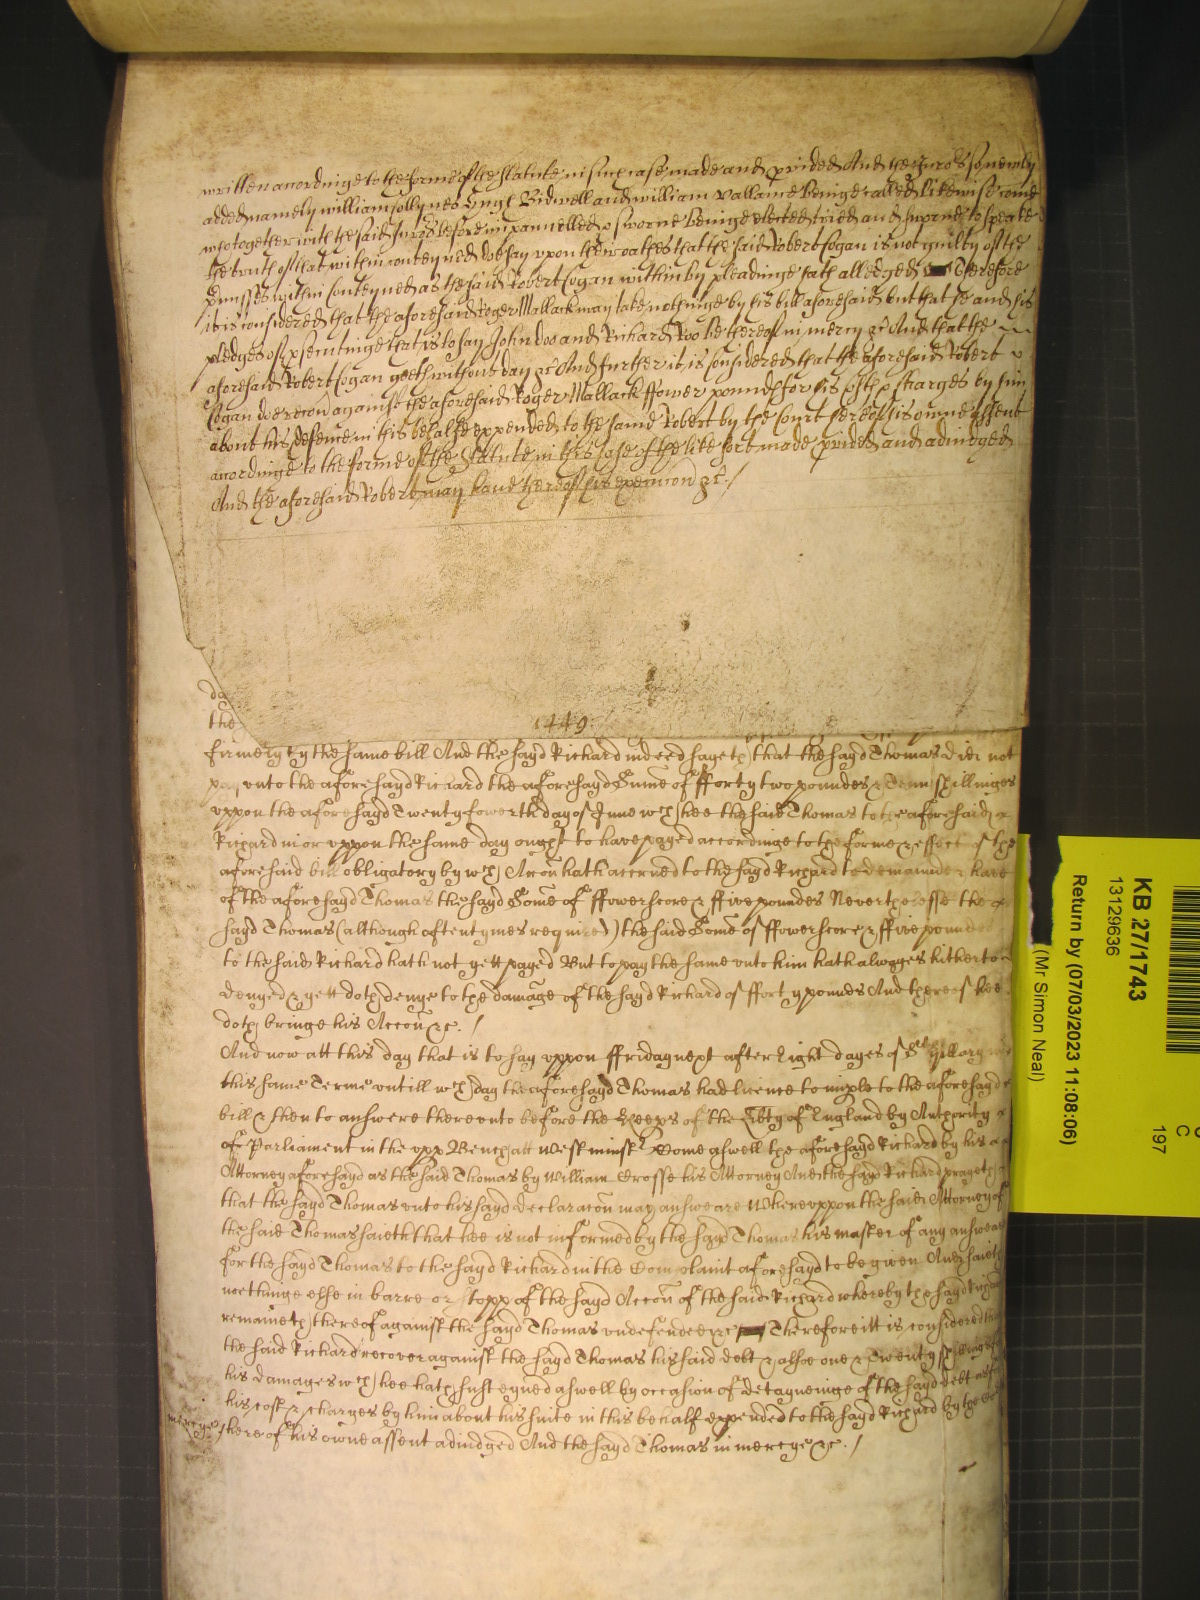 written accordinge to the forme of the Statute in such case made and pvided And the Jurors so newly
added namely william Jollynes Hugh Bidwell and william Vallance beinge called likewise came
who together with the said Jurors before impannelled & sworne beinge elected tried and sworne to speake
the truth of that within conteyned doe say vpon their oathes that the said Robert Cogan is not guilty of the
pmisses within conteyned as the said Robert Cogan within by pleadinge hath alledged Therefore
it is considered that the aforesaid Roger Mallack may take nothinge by his bill aforesaid but that he and his
pledges of psecutinge that is to say John Doo and Richard Roo be thereof in mercy &c And that the
aforesaid Robert Cogan goeth without day &c And further it is considered that the aforesaid Robert
Cogan doe recou against the aforesaid Roger Mallack ffower pounds for his costs & charges by him
about his defence in this behalfe expended to the same Robert by the Court hereof his owne assent
accordinge to the forme of the Statute in this case of the like sort made pvided and adiudged
And the aforesaid Robert may haue thereof his execucion &c /
da
the
1449
firmely by the same bill And the sayd Richard indeed sayeth that the sayd Thomas did not
pay vnto the aforesayd Richard the aforesayd Some of fforty two poundes & Tenn shillinges
vppon the aforesayd Twenty fowerth day of June wch hee the said Thomas to the aforesaid
Richard in or vppon the same day ought to have payed accordinge to the forme & effect of the
aforesaid bill obligatory by wch Accon hath accrued to the sayd Richard to demaund & have
of the aforesayd Thomas the sayd Some of ffowerscore & ffive poundes Neverthelesse the
sayd Thomas (although oftentymes required) the said Some of ffowerscore & ffive poundes
to the said Richard hath not yett payed But to pay the same vnto him hath alwayes hitherto
denyed & yett doth denye to the damage of the sayd Richard of fforty poundes And thereof hee
doth bringe his Accon &c. /
And now att this day that is to say vppon ffriday next after Eight dayes of St Hillary
this same Terme vntill wch day the aforesayd Thomas had licence to imple to the aforesayd
bill & then to answere therevnto before the Keeps of the Libty of England by Authority
of Parliament in the vpp Bench att Westminstr Come aswell the aforesayd Richard by his
Attorney aforesayd as the said Thomas by William Crosse his Attorney And the sayd Richard prayeth
that the sayd Thomas vnto his sayd declaracon may answeare Wherevppon the said Attorney of
the said Thomas saieth that hee is not informed by the sayd Thomas his master of any answeare
for the sayd Thomas to the sayd Richard in the Complaint aforesayd to be given And saieth
nothinge else in barre or stopp of the sayd Accon of the said Richard whereby the sayd Richard
remaineth thereof against the sayd Thomas vndefended &c Therefore itt is considered that
the said Richard recover against the sayd Thomas his said debt & alsoe one & Twenty shillinges for
his damages wch hee hath susteyned aswell by occasion of detayneinge of the sayd debt as for
his costs & charges by him about his suite in this behalf expended to the sayd Richard by the
mercye
there of his owne assent adiudged And the sayd Thomas in mercye &c. /
KB 27/1743
13129636
Return by (07/03/2023 11:08:06)
(Mr Simon Neal)
C
197